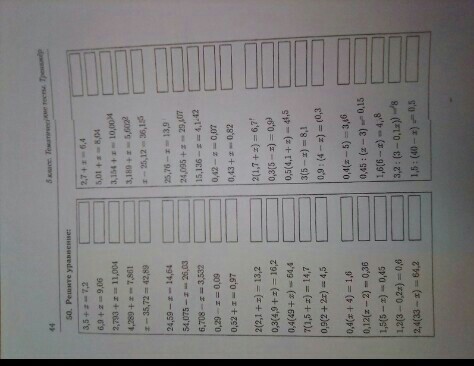 44
5 класс. Математические тесты. Тренажёр
50. Решите уравнение:
3,5 + x = 7,2
6,9 + x = 9,06
2,793 + x = 11,004
4,289 + x = 7,861
x − 35,72 = 42,89
24,59 − x = 14,64
54,075 − x = 26,03
6,708 − x = 3,532
0,29 − x = 0,09
0,52 + x = 0,97
2(2,1 + x) = 13,2
0,3(4,9 + x) = 16,2
0,4(49 − x) = 64,4
7(1,5 + x) = 14,7
0,9(2 + 2x) = 4,5
0,4(x + 4) = 1,6
0,12(x − 2) = 0,36
1,5(5 − x) = 0,45
1,2(3 − 0,2x) = 0,6
2,4(33 − x) = 64,2
2,7 + x = 6,4
5,01 + x = 8,04
3,154 + x = 10,004
3,189 + x = 5,602
x − 25,12 = 36,15
25,76 − x = 13,9
24,095 + x = 29,407
15,136 − x = 4,142
0,42 − x = 0,07
0,43 + x = 0,82
2(1,7 + x) = 6,7
0,3(5 − x) = 0,9
0,5(4,1 + x) = 4,5
3(5 − x) = 8,1
0,9 : (4 − x) = 0,3
0,4(x − 5) = 3,6
0,45 : (x − 3) = 0,15
1,6(6 − x) = 4,8
3,2 : (3 − 0,1x) = 8
1,5 : (40 − x) = 0,5